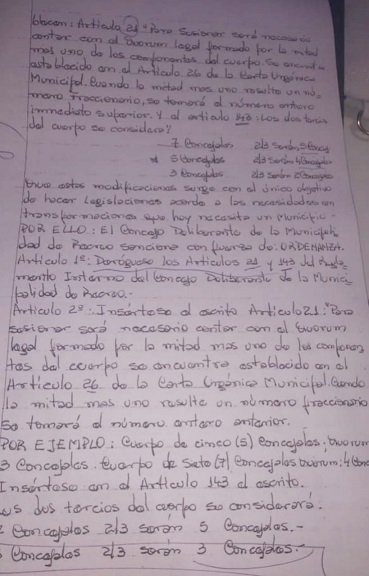 blecen: Artículo 21 "Para Sesionar será necesario
contar con el Quorum legal formado por la mitad
mas uno de los componentes del cuerpo. Se encuentra
establecido en el Artículo 26 de la Carta Orgánica
Municipal. Cuando la mitad mas uno resulte un nú-
mero fraccionario, se tomará el número entero
inmediato superior. Y el artículo 143: Los dos tercios
del cuerpo se considera:
7 Concejales 2/3 Serán 5
5 Concejales 2/3 Serán 4
3 Concejales 2/3 Serán 2
Que, estas modificaciones surge con el único objetivo
de hacer Legislaciones acorde a las necesidades en
transformaciones que hoy necesita un Municipio.-
POR ELLO: El Concejo Deliberante de la Municipali-
dad de Recreo Sanciona con fuerza de: ORDENANZA.
Artículo 1º: Deróguese los Artículos 21 y 143 del Regla-
mento Interno del Concejo Deliberante de la Munici-
palidad de Recreo.-
Artículo 2º: Insertese el escrito Artículo 21: "Para
sesionar será necesario contar con el Quorum
legal formado por la mitad mas uno de los componen
tes del cuerpo se encuentra establecido en el
Artículo 26 de la Carta Orgánica Municipal. Cuando
la mitad mas uno resulte un número fraccionario
Se tomará el número entero anterior.
POR EJEMPLO: Cuerpo de cinco (5) Concejales: Quorum
3 Concejales. Cuerpo de Siete (7) Concejales Quorum: 4
Insertese en el Artículo 143 el escrito.
Los dos tercios del cuerpo se considerará.
Concejales 2/3 serán 5 Concejales.-
Concejales 2/3 serán 3 Concejales.-